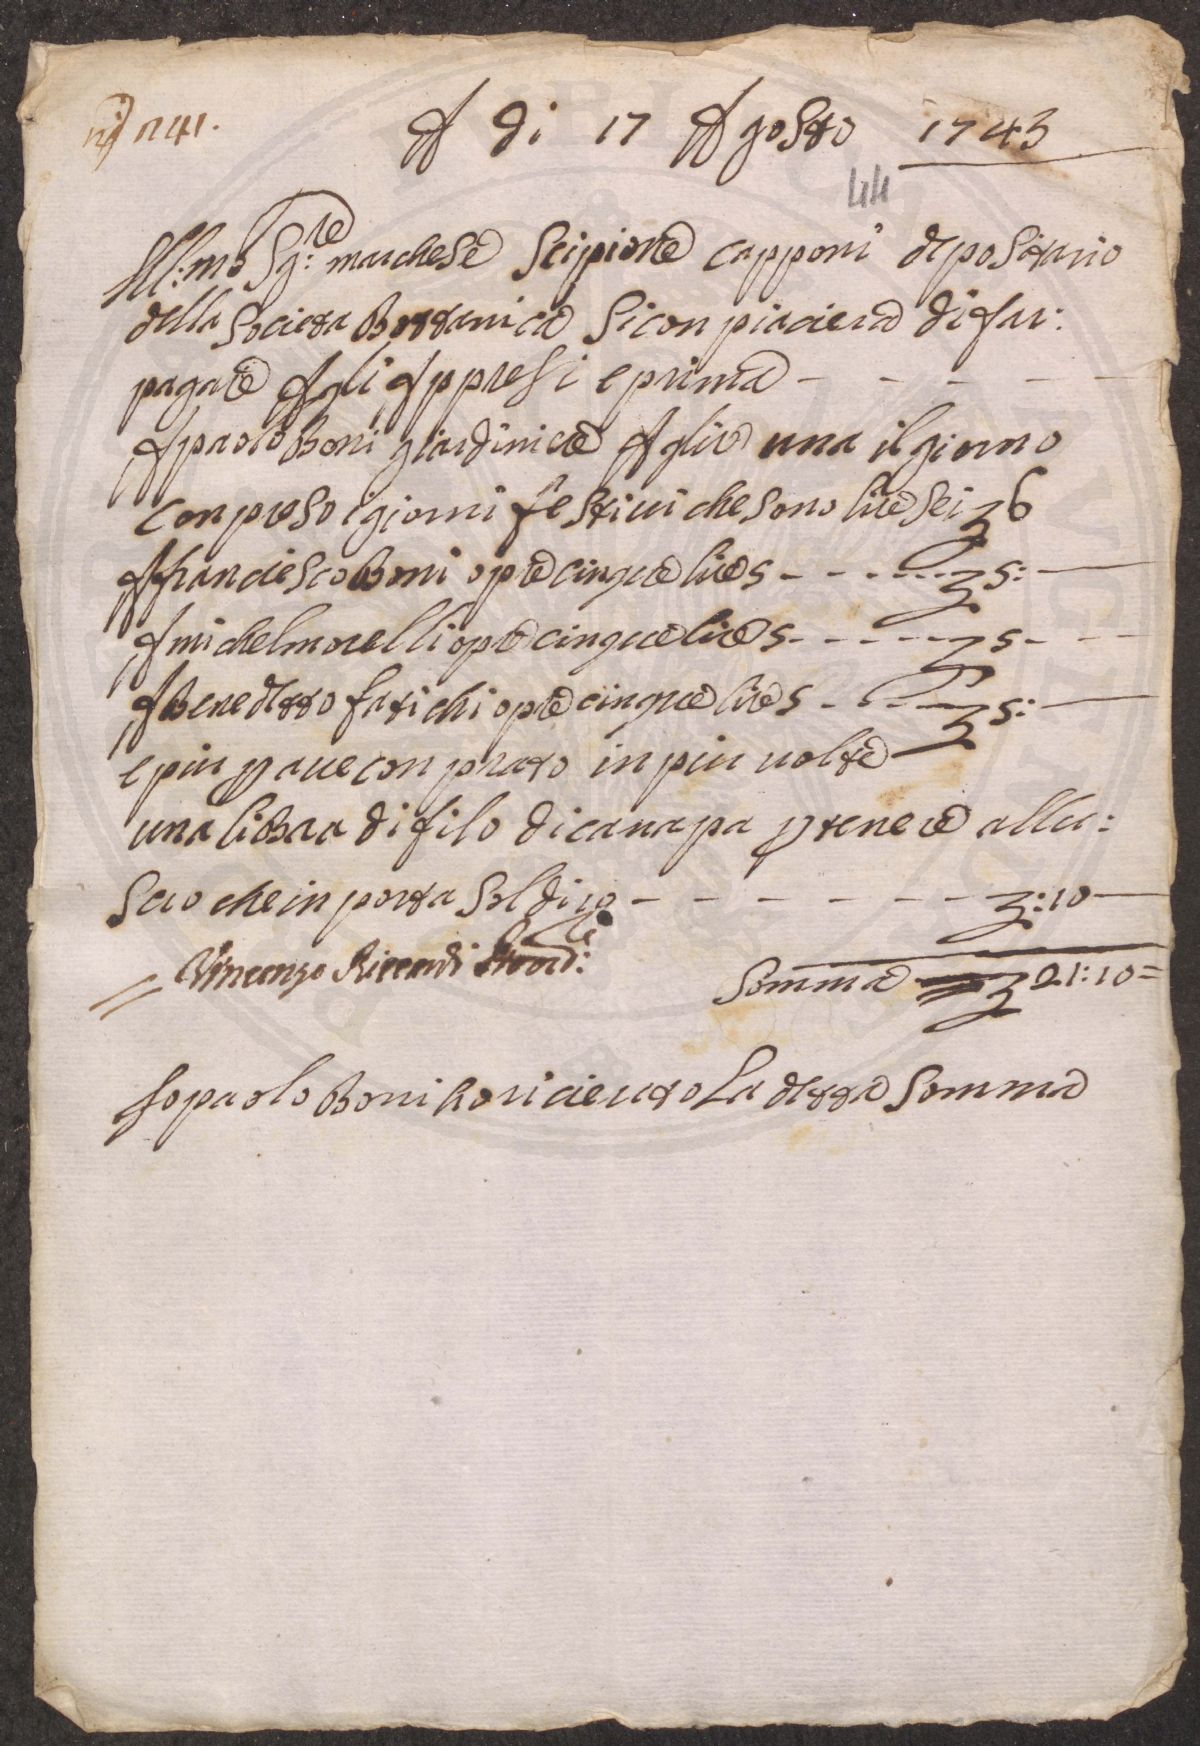 A di 17 Agosto 1743
44
Ill:mo Sg:re marchese Scipione capponi depositario
della Societa Bottanica Si con piacera di far:
pagare A gli Appresi e prima - - - - -
A paolo Boni giardiniere A lire una il giorno
Conpreso i giorni festivi che sono lire sei 6
A franciesco Boni opre cinque lire 5 - - - 5:
A michel morelli opre cinque lire 5 - - - 5 -
A Benedetto fatichi opre cinque lire 5 - - - 5:
e piu p aue con prato in piu uolte
una libbra di filo di canapa p tenere allu:
Scio che in porta Soldi 10 - - - - - - :10
Vincenzo Riccardi
Somma 21:10=
Io paolo Boni ho ricieuto La detta Somma